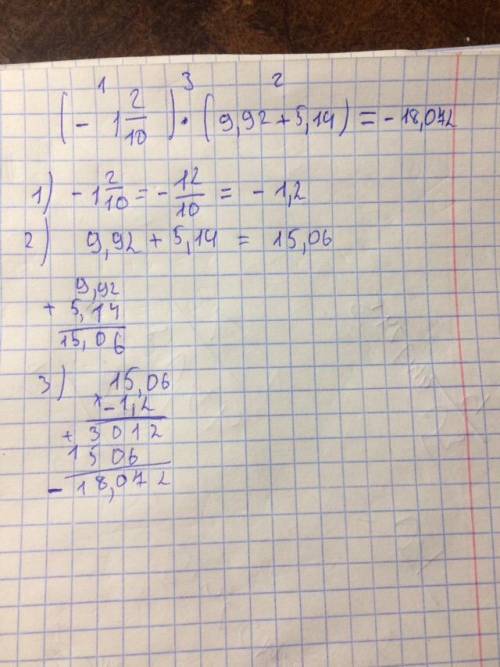 1 3 2
(- 1 2/10) · (9,92 + 5,14) = - 18,072
1) - 1 2/10 = - 12/10 = - 1,2
2) 9,92 + 5,14 = 15,06
9,92
+ 5,14
15,06
3) 15,06
× - 1,2
+ 3012
1506
- 18,072